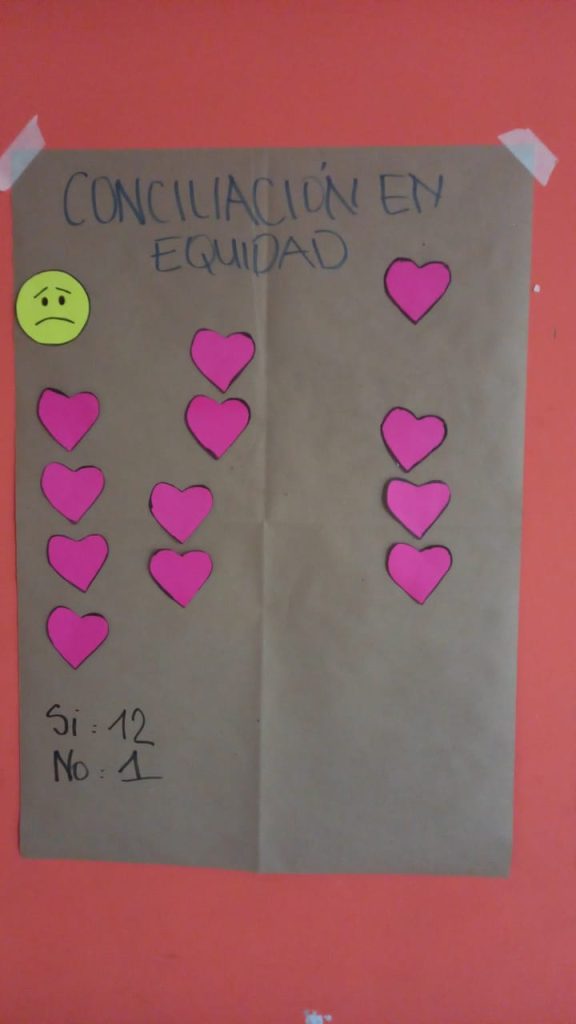 CONCILIACIÓN EN
EQUIDAD
Si : 12
No : 1